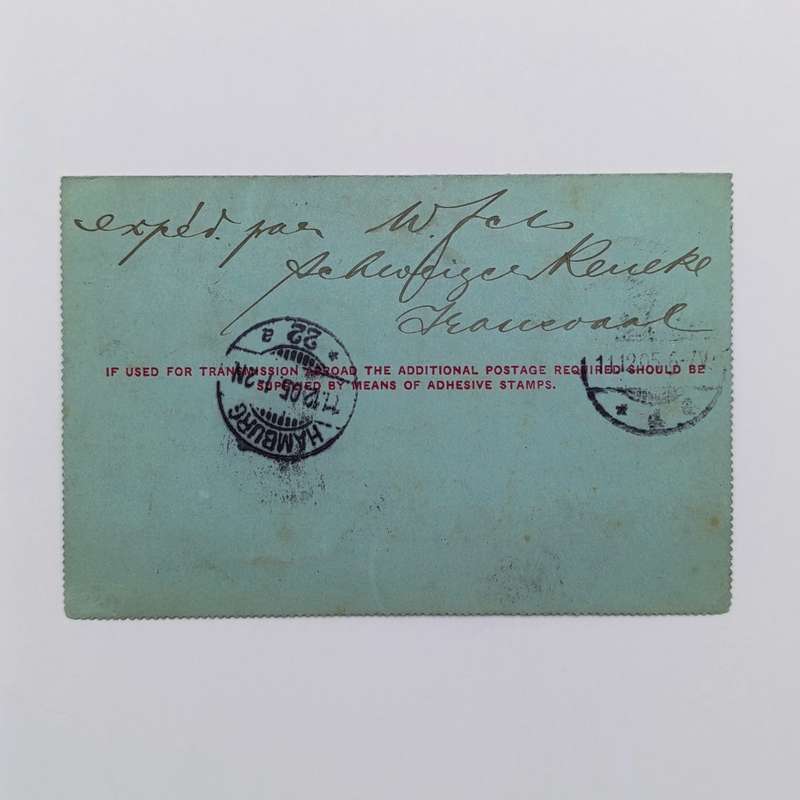 expéd. par W. 
Schweizer Reneke
Transvaal
IF USED FOR TRANSMISSION ABROAD THE ADDITIONAL POSTAGE REQUIRED SHOULD BE
SUPPLIED BY MEANS OF ADHESIVE STAMPS.
HAMBURG
11.12.05.1-2N
* 22 a
11.12.05.6-7V.
* a